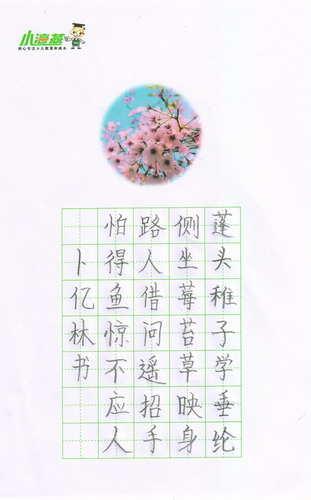 蓬头稚子学垂纶
侧坐莓苔草映身
路人借问遥招手
怕得鱼惊不应人
卜亿林书